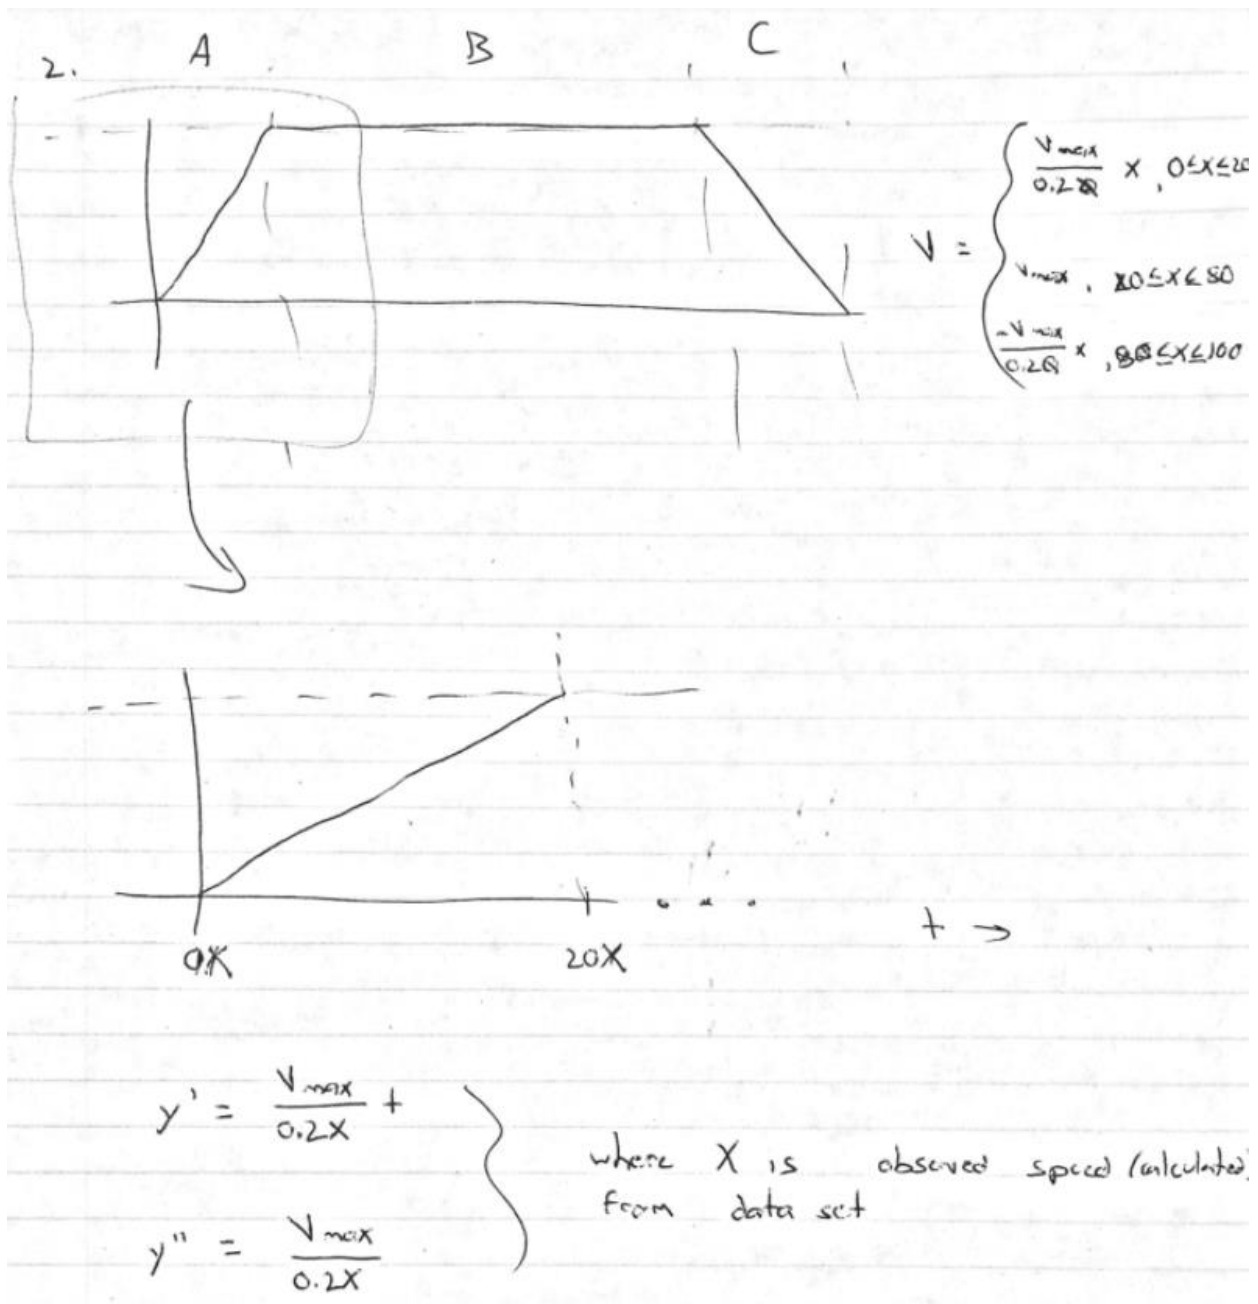 2. A B C
V max / 0.2 x , 0≤x≤20
V =
Vmax , 20≤x≤80
-V max / 0.2 x , 80≤x≤100
0X 20X t →
y' = Vmax / 0.2X t
where X is observed speed (calculated)
from data set
y'' = Vmax / 0.2X